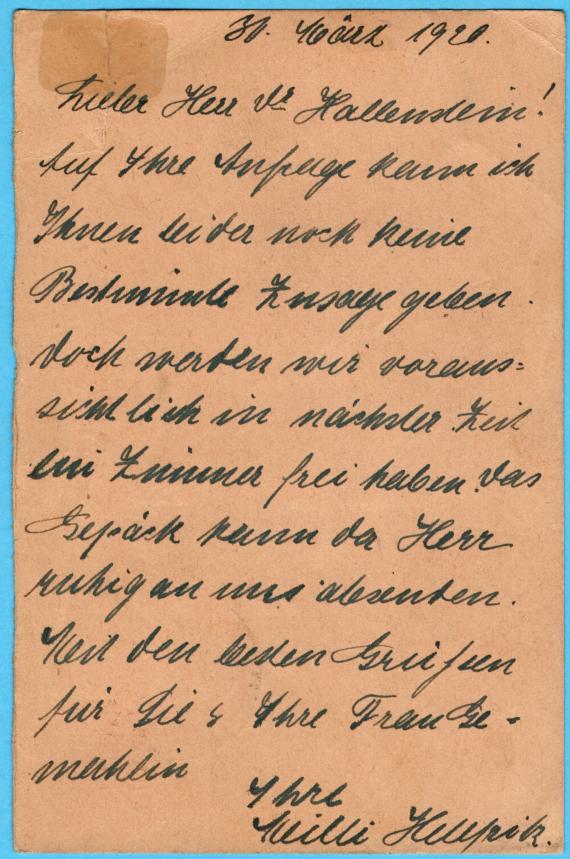 30. März 1920.
Lieber Herr Dr Hallenstein!
Auf Ihre Anfrage kann ich
Ihnen leider noch keine
Bestimmte Zusage geben.
Doch werden wir voraus=
sichtlich in nächster Zeit
ein Zimmer frei haben. Das
Gepäck kann der Herr
ruhig an uns absenden.
Mit den besten Grüßen
für Sie & Ihre Frau Ge-
mahlin
Ihre
Milli